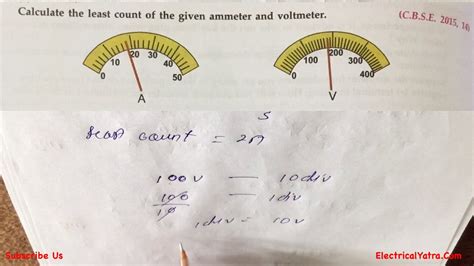 Calculate the least count of the given ammeter and voltmeter.
(C.B.S.E. 2015, 14)
0 10 20 30 40 50
A
0 100 200 300 400
V
5
Least count = 2A
100V — 10div
100 — 1div
10
1div = 10V
Subscribe Us
ElectricalYatra.Com